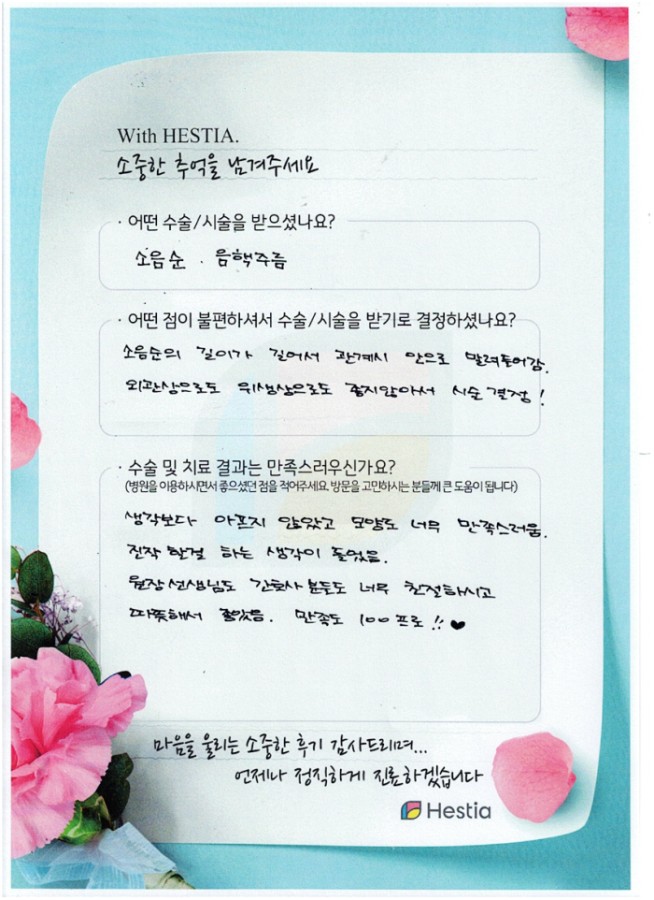 With HESTIA.
소중한 추억을 남겨주세요
· 어떤 수술/시술을 받으셨나요?
소음순 . 음핵주름
· 어떤 점이 불편하셔서 수술/시술을 받기로 결정하셨나요?
소음순의 길이가 길어서 관계시 안으로 말려들어감.
외관상으로도 위생상으로도 좋지않아서 시술 결정!
· 수술 및 치료 결과는 만족스러우신가요?
(병원을 이용하시면서 좋으셨던 점을 적어주세요. 방문을 고민하시는 분들께 큰 도움이 됩니다)
생각보다 아프지 않았고 모양도 너무 만족스러움.
진작 할걸 하는 생각이 들었음.
원장선생님도 간호사분들도 너무 친절하시고
따뜻해서 좋았음. 만족도 100프로!! ♥
마음을 울리는 소중한 후기 감사드리며...
언제나 정직하게 진료하겠습니다
Hestia